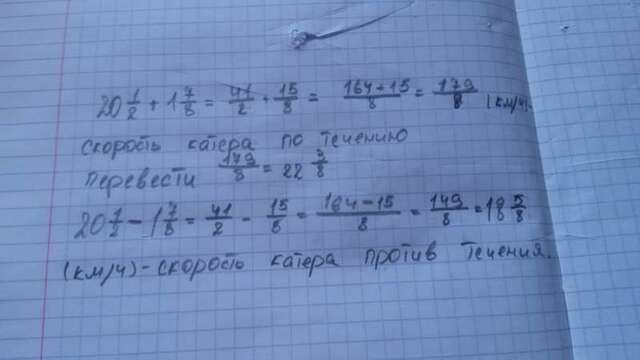 20 1/2 + 1 7/8 = 41/2 + 15/8 = 164+15/8 = 179/8 (км/ч).
скорость катера по течению
перевести 179/8 = 22 3/8
20 1/2 - 1 7/8 = 41/2 - 15/8 = 164-15/8 = 149/8 = 18 5/8
(км/ч)-скорость катера против течения.